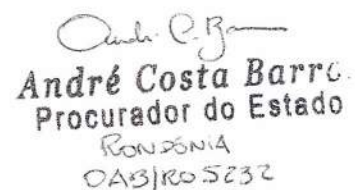 André Costa Barro
Procurador do Estado
RONDÔNIA
OAB/RO 5232